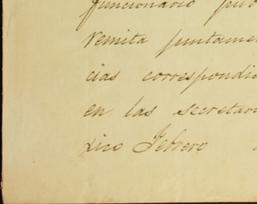 funcionario pub
remita juntame
cias correspondi
en las secretar
xico Febrero